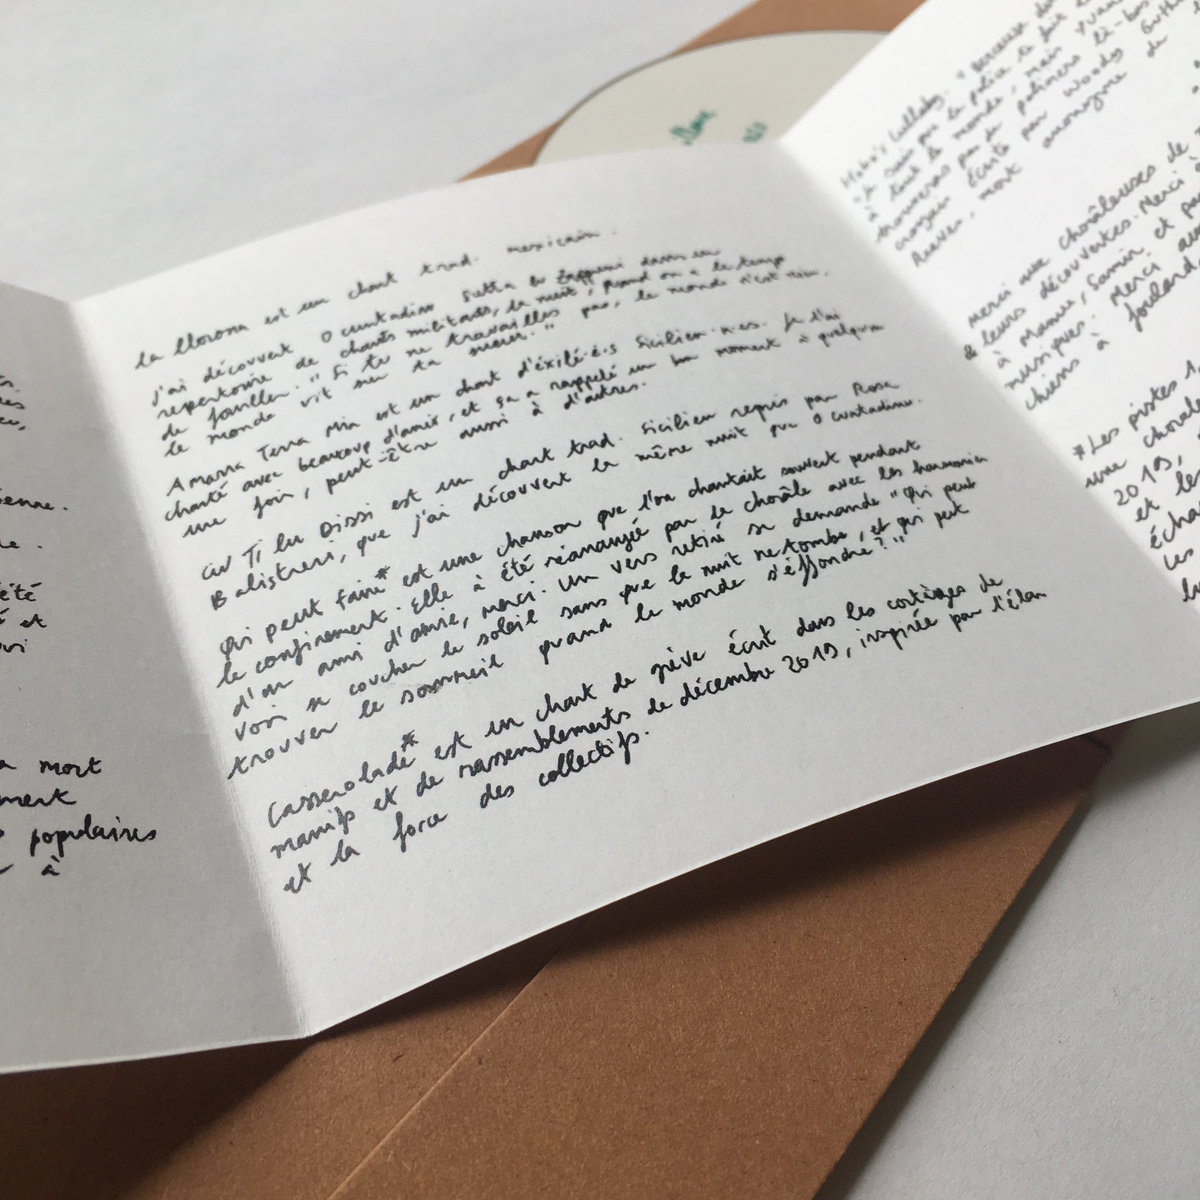 ts.
res
eu,
enne.
le.
été
é et
ovi
a mort
ment
populaires
à
La llorona est un chant trad. mexicain.
J'ai découvert O cuntadino sutta lu zappuni dans un
répertoire de chants militants, la nuit, quand on a le temps
de fouiller. "Si tu ne travailles pas, le monde n'est rien,
le monde vit sur ta sueur."
Amara Terra Mia est un chant d'éxilé·e·s Sicilien·n·es. Je l'ai
chanté avec beaucoup d'amis, et ça a rappelé un bon moment à quelqu'un
une fois, peut-être aussi à d'autres.
Cu Ti Lu Dissi est un chant trad. Sicilien repris par Rosa
Balistreri, que j'ai découvert la même nuit que O cuntadinu.
Qui peut faire* est une chanson que l'on chantait souvent pendant
le confinement. Elle à été réarrangée par la chorale avec les harmonies
d'un ami d'amie, merci. Un vers retiré su demande "Qui peut
voir se coucher le soleil sans que la nuit ne tombe, et qui peut
trouver le sommeil quand le monde s'éffondre?"
Casserolade* est un chant de grève écrit dans les cortèges de
manifs et de rassemblements de décembre 2019, inspirée par l'élan
et la force des collectifs.
Hobo's Lullaby. "berceuse
et sais que la police te fait
à tout le monde, mais
trouveras pas de policiers là-bas
croyais écrite par Woody Guthrie
Reever, mort anonyme
Merci aux chorâleuses de
de leurs découvertes. Merci
à Manue, Samin et
musiques. Merci aux
chiens à foulard,
*Les pistes 1,
une chorale
2019,
et les
écha
les